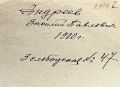 Андреев
Василий Павлович
1900 г.
Злободская № 47